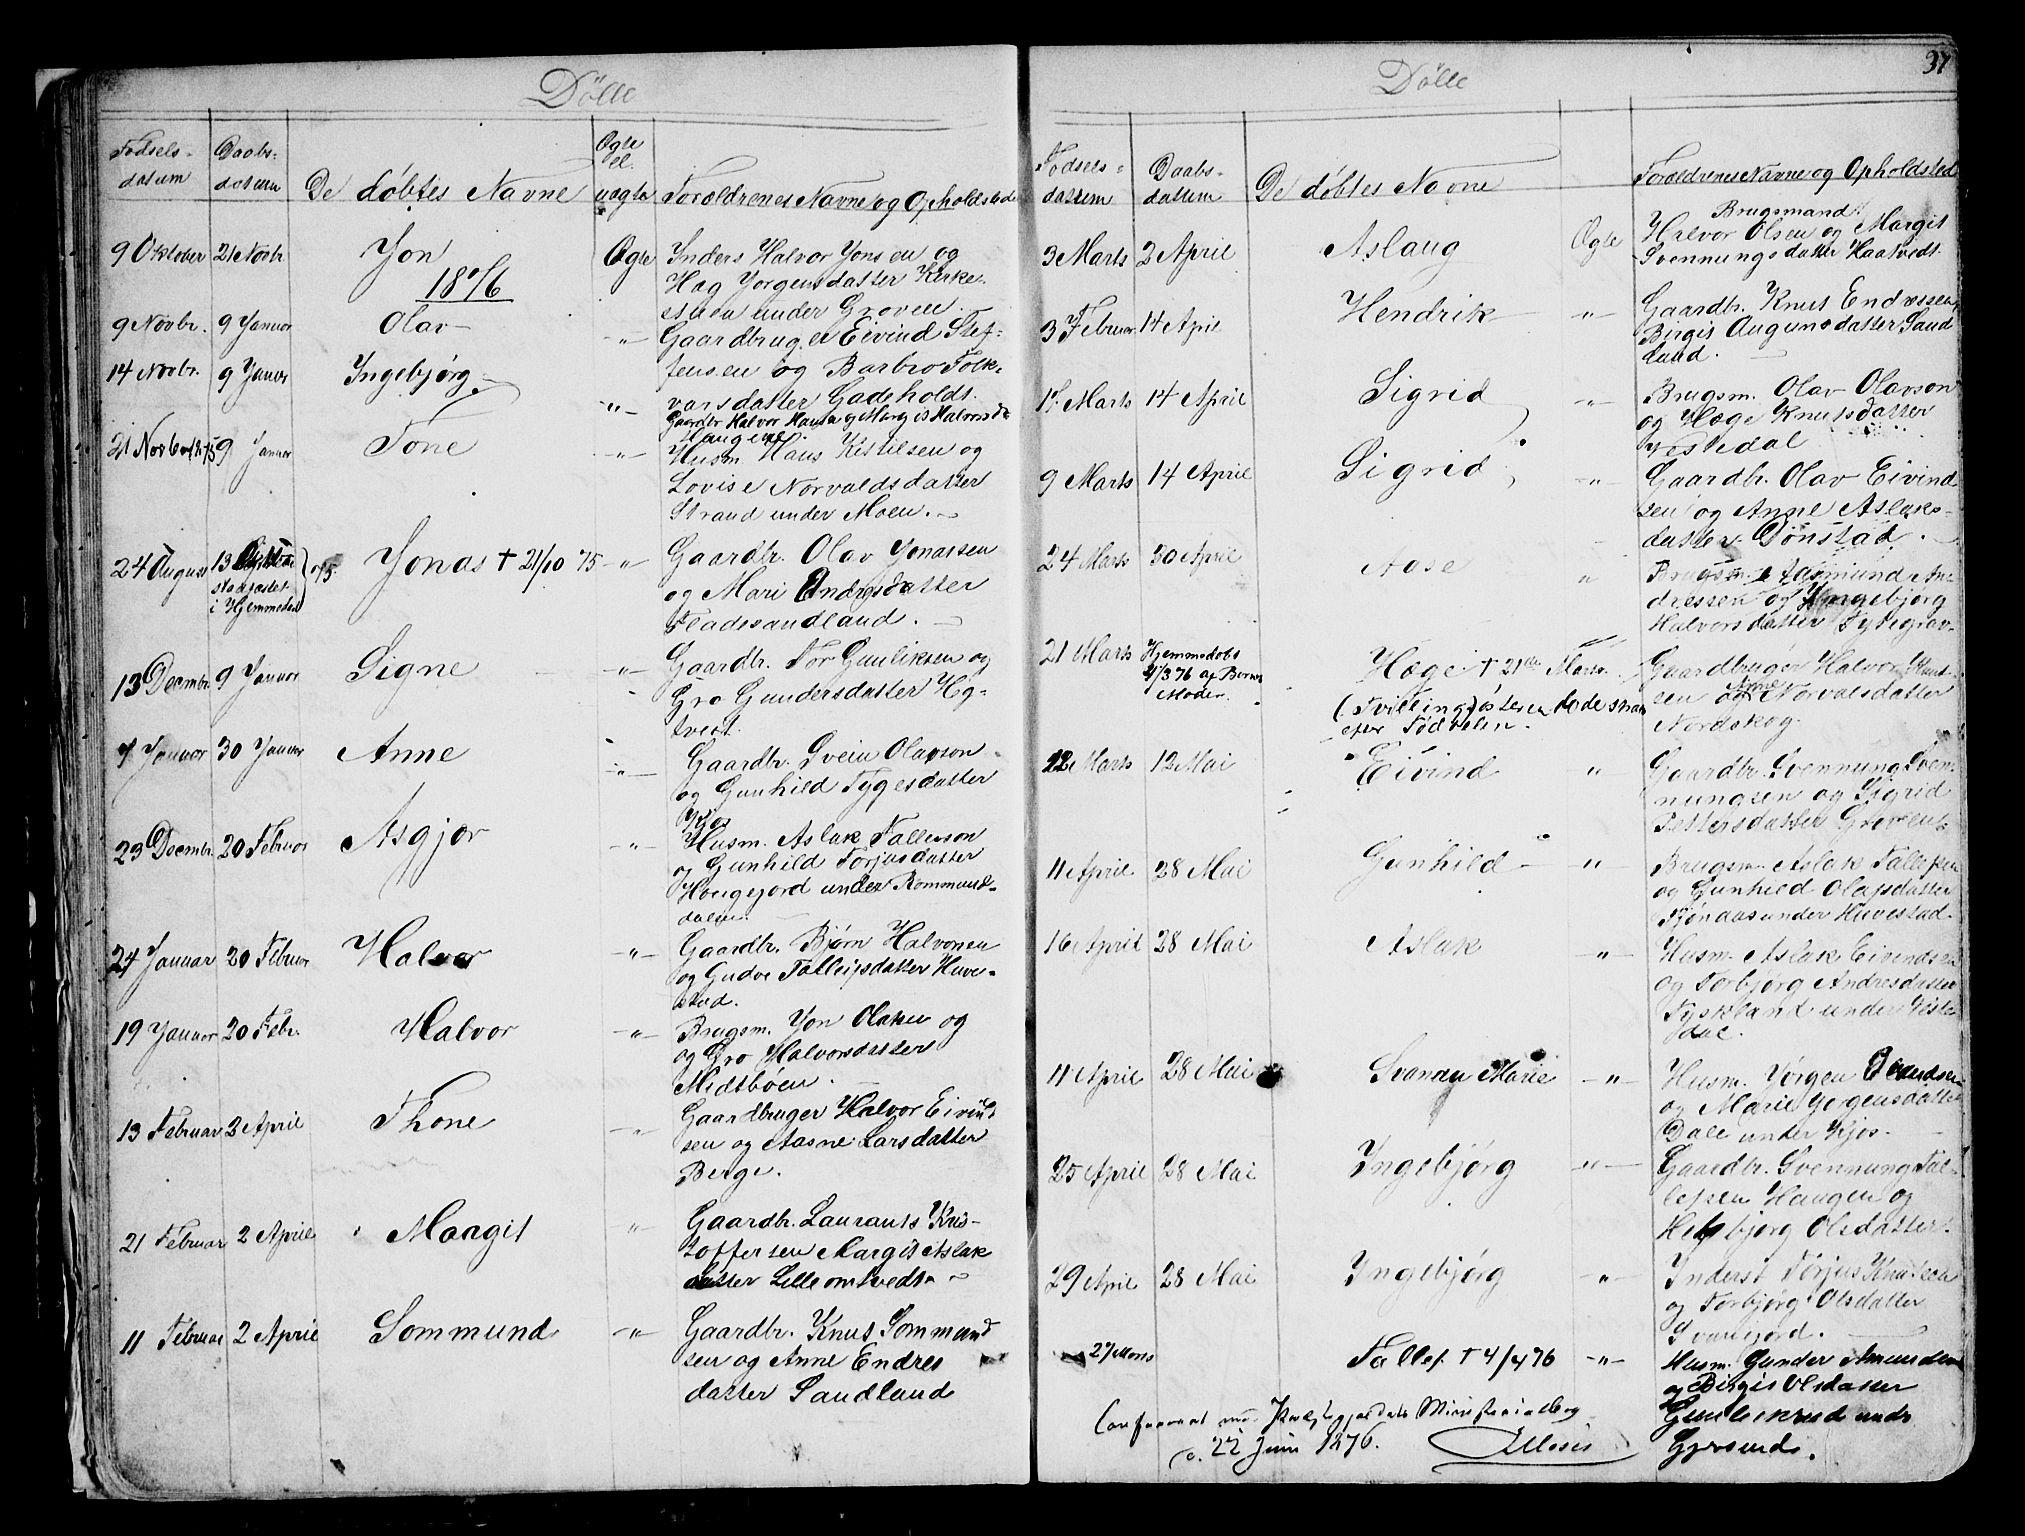 Döbte
Fødsels-
datum
Daabs-
datum
De döbtes Navne
Ægte
el.
uægte
Forældrenes Navne og Opholdsted
9 Oktober 21 Novbr. Jon Ægte Inders Halvor Jonsen og
Hæg Jörgensdatter Kirke-
1876
stuen under Groven.
9 Novbr. 9 Januar Olav -"- Gaardbruger Eivind Stef-
14 Novbr. 9 Januar Ingebjørg -"- fensen og Barbro Folk-
varsdatter Gadeholdt.
Gaardbr Halvor Hansen og Margit Halvorsd.
Haugene.
21 Novbr 1875 9 Januar Tone -"- Husm. Hans Kittilsen og
Lovise Norvaldsdatter
Strand under Moen.
24 August 13 Oktober 75 Jonas † 21/10 75 -"- Gaardbr. Olav Jonassen
stadfæstet
i Hjemmedaab
og Mari Endresdatter
Fladesandland.
13 Decmbr. 9 Januar Signe -"- Gaardbr. Tor Gunliksen og
Gro Gundersdatter Hg-
tveit.
7 Januar 30 Januar Anne -"- Gaardbr. Svein Olavson
og Gunhild Tygesdatter
Kjos
23 Decmbr. 20 Februar Asgjer -"- Husm. Aslak Tallevson
og Gunhild Torjusdatter
Hougejord under Rommund-
dalen.
24 Januar 20 Februar Halvor -"- Gaardbr. Bjørn Halvorsen
og Gudve Talleifsdatter Huve-
stad.
19 Januar 20 Febr. Halvor -"- Brugsm. Jon Olsen og
og Gro Halvorsdatter
Midtböen.
13 Februar 2 April Thone -"- Gaardbruger Halvor Eivind
sen og Aasne Larsdatter
Berge.
21 Februar 2 April Margit -"- Gaardbr. Laurants Kris-
toffersen Margit Aslak
datter Lilleomtvedt.
11 Februar 2 April Sommund -"- Gaardbr. Knut Sommund
sen og Anne Endres
datter Sandland
37
Döbte
Fødsels-
datum
Daabs-
datum
De döbtes Navne
Forældrenes Navne og Opholdsted
Brugsmand
3 Marts 2 April Aslaug Ægte Halvor Olsen og Margit
Svennungsdatter Haatvedt.
3 Februar 14 April Hendrik -"- Gaardbr. Knut Endressen
Birgit Augunsdatter Sand
land.
17 Marts 14 April Sigrid -"- Brugsm. Olav Olavson
og Hæge Knutsdatter
Vestedal
9 Marts 14 April Sigrid -"- Gaardbr. Olav Eivind
sen og Anne Aslaks-
datter Tönstad.
24 Marts 30 April Aase " Brugsm. Aasmund An-
dressen og Ingebjørg
Halvorsdatter Tytegrav-
21 Marts Hjemmedöbt
21/3 76 af Barnets
Moder.
Hæge † 21de Marts. Gaardbruger Halvor Knut-
sen og Anne Norvalsdatter
(Tvillingsösteren döde strax
efter Födselen. Nordskog.
22 Marts 12 Mai Eivind " Gaardbr. Svennung Sven-
nungsen og Sigrid
Pettersdatter Groven
11 April 28 Mai Gunhild - " Brugsm. Aslak Tallefsen
og Gunhild Olafsdatter
Tjönaas under Huvestad
16 April 28 Mai Aslak -"- Husm. Aslak Eivindsen
og Torbjörg Andresdatter
Tyskland under Veste
dal.
11 April 28 Mai Svanau Marie -"- Husm. Jörgen
og Marie Jörgensdatter
Dale under Kjos.
25 April 28 Mai Ingebjörg -"- Gaardbr. Svennung Tal-
lefsen Haugen og
Helgbjørg Olsdatter.
29 April 28 Mai Ingebjörg -"- Inderst Torjus Knutsen
og Torbjørg Olsdatter
Svarejord.
27 Marts Tallef. † 4/4 76 -"- Husm. Gunder Amundsen
og Birgit Olsdatter
Gunlekrud under
Gjersund.
Confereret med Præstegjældets Ministerialbog
d. 22 Juni 1876.